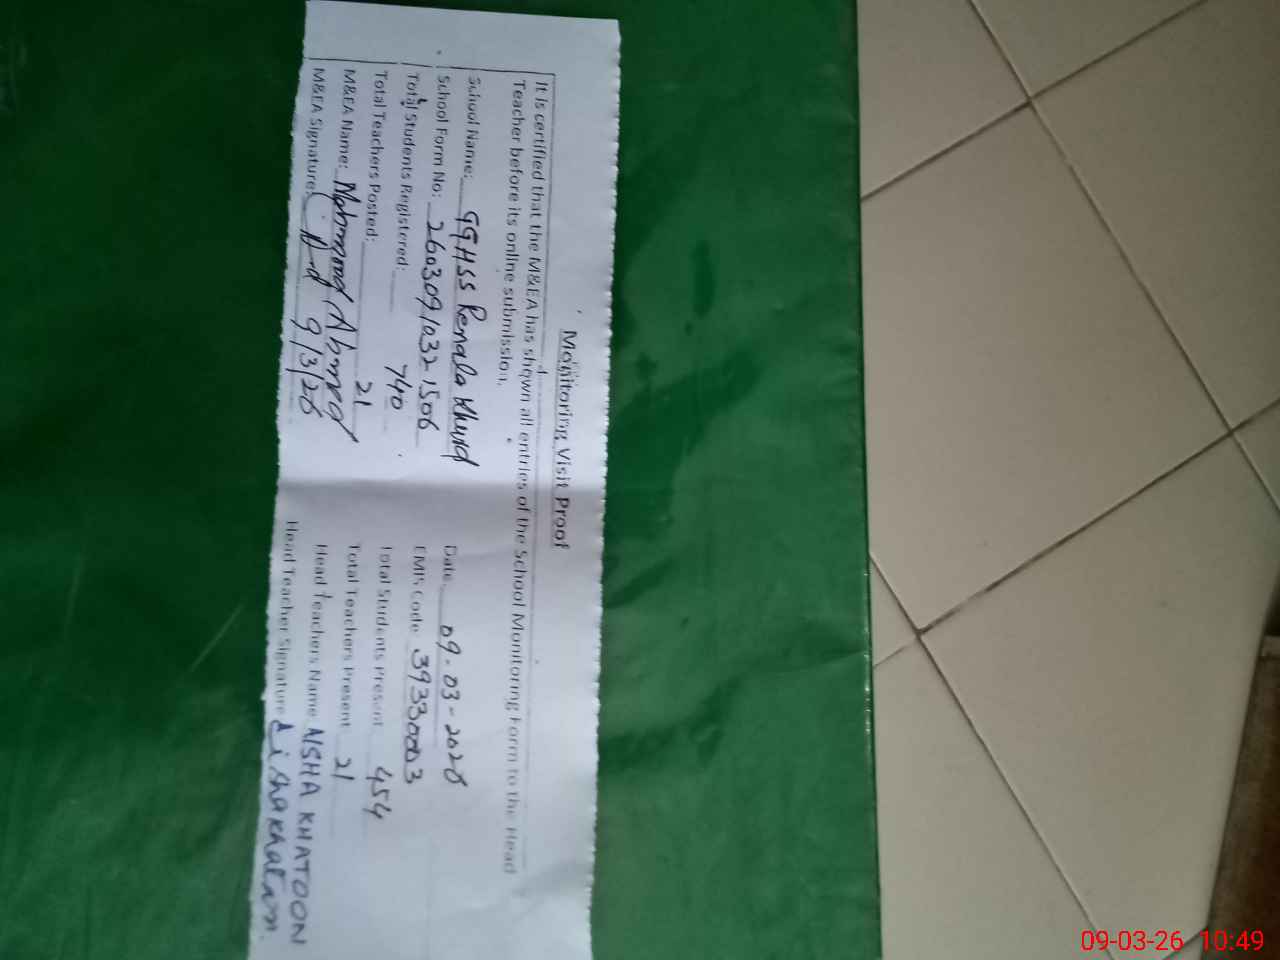 Monitoring Visit Proof
It is certified that the M&EA has shown all entries of the School Monitoring Form to the Head
Teacher before its online submission.
School Name: GGHSS Renala Khurd Date 09-03-2026
School Form No: 2603091032 1506 EMIS Code 39330003
Total Students Registered: 740 Total Students Present 454
Total Teachers Posted: 21 Total Teachers Present 21
M&EA Name: Mahmood Ahmed Head Teachers Name AISHA KHATOON
M&EA Signature: 9/3/26 Head Teacher Signature Aisha Khatoon.
09-03-26 10:49